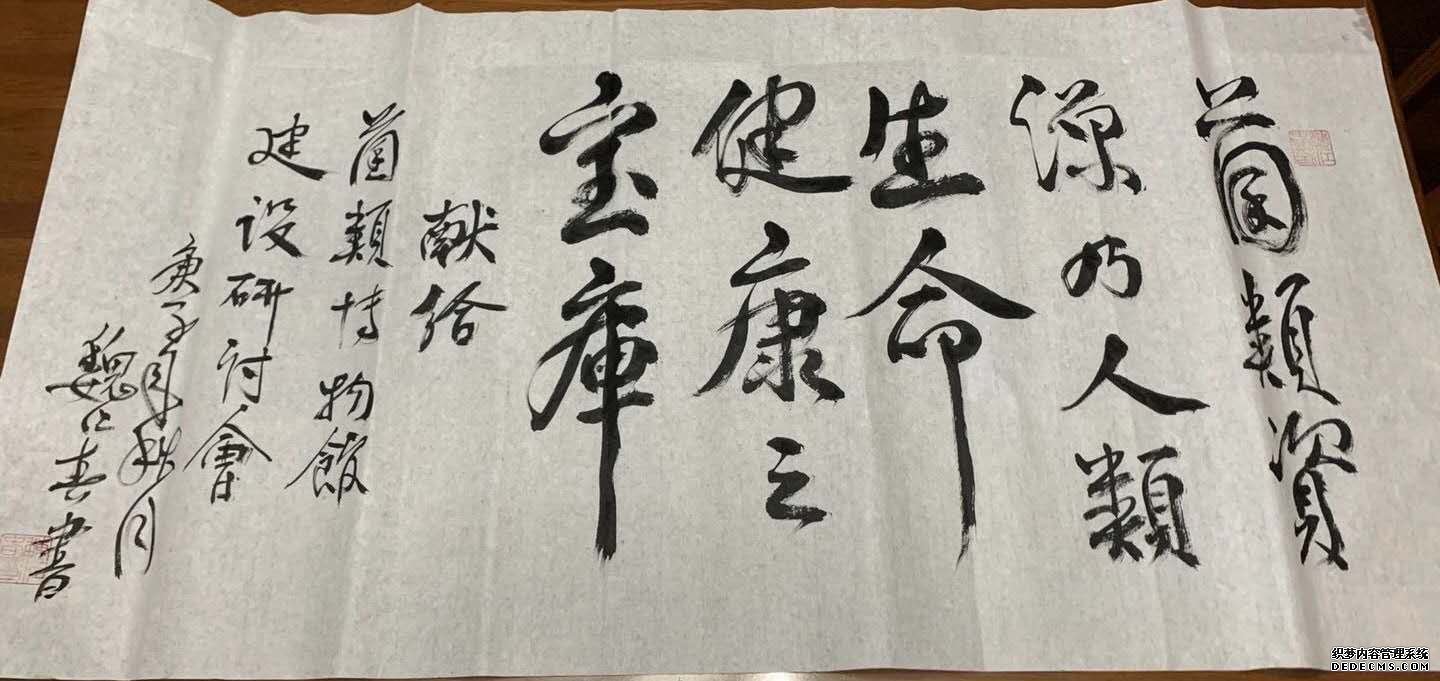 菌類資
源乃人類
生命
健康之
宝庫
献给
菌類博物館
建设研讨會
庚子
秋月
魏仁春書
织梦内容管理系统
DEDECMS.COM